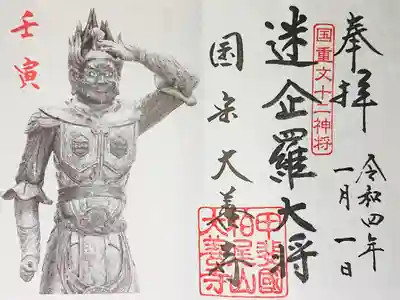 奉拝
令和四年
一月一日
国重文十二神将
迷企羅大将
甲斐國
柏尾山
大善寺
国宝大善寺
壬寅